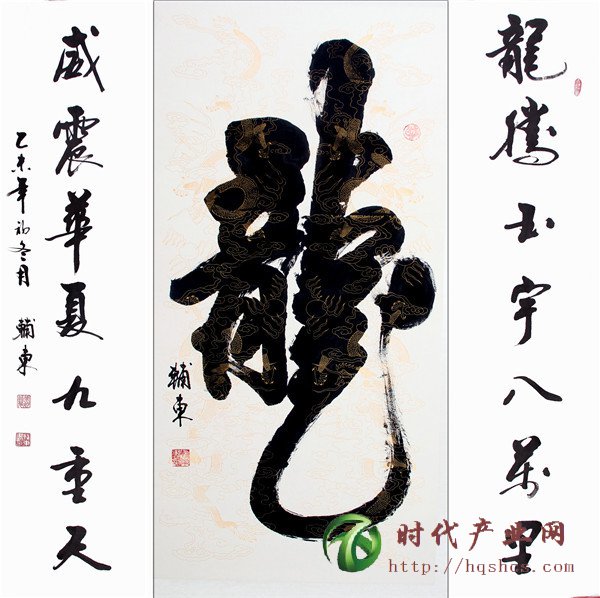 龍騰玉宇八萬里
龍
輔東
威震華夏九重天
乙未年初冬月 輔東
时代产业网
http://hqshcs.com